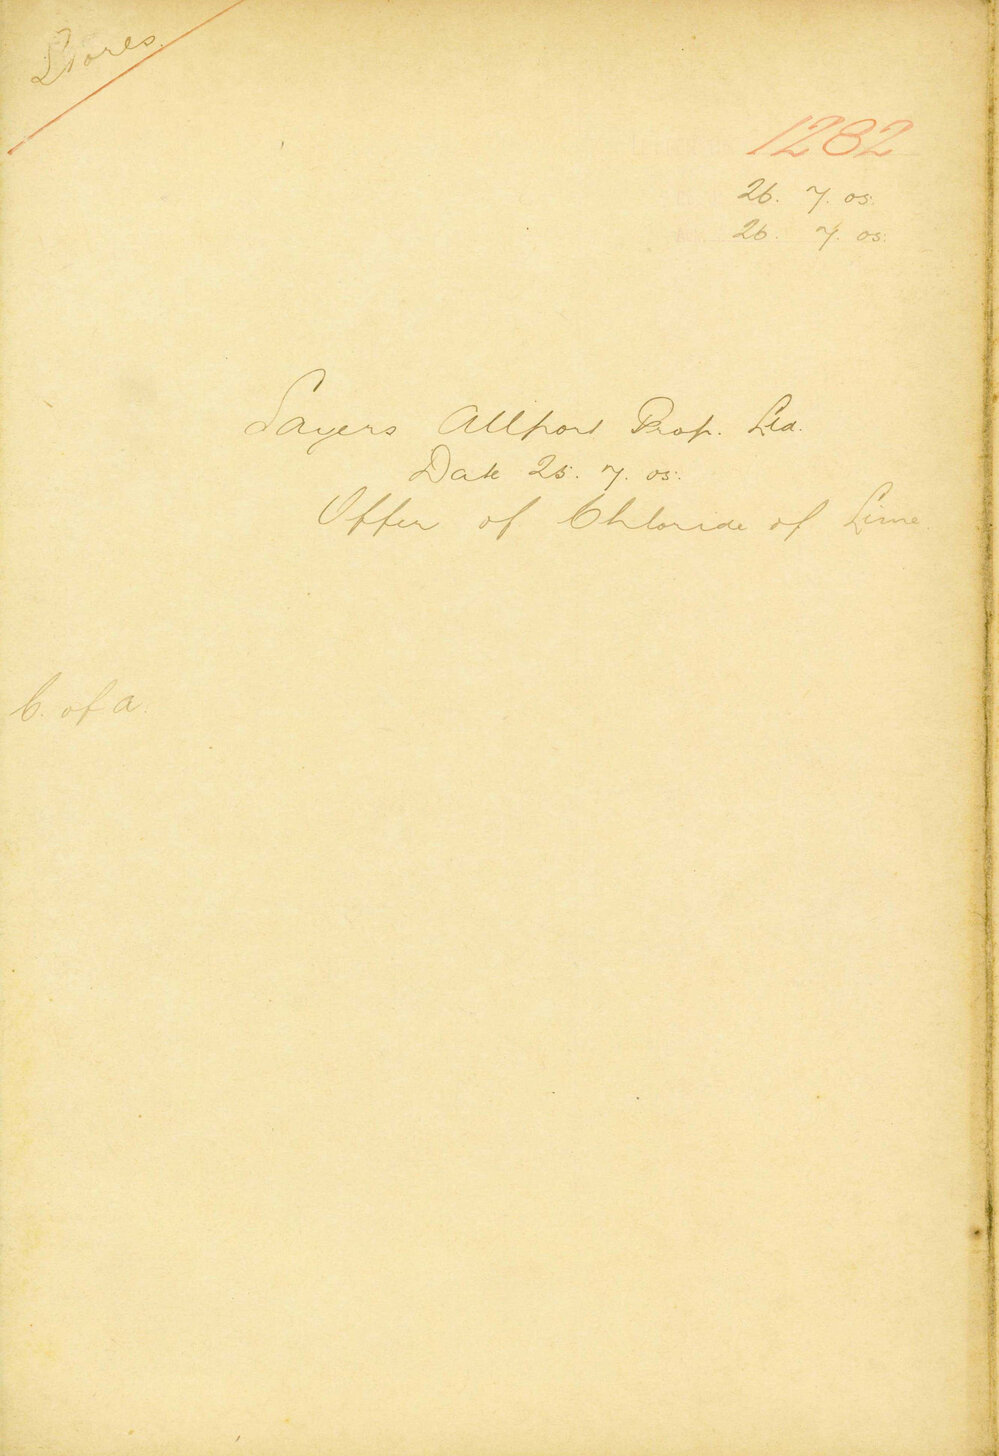 Stores
1282
26. 7. 05.
26. 7. 05.
Sayers Allport Prop. Ltd.
Date 25. 7. 05.
Offer of Chloride of Lime
C. of A.